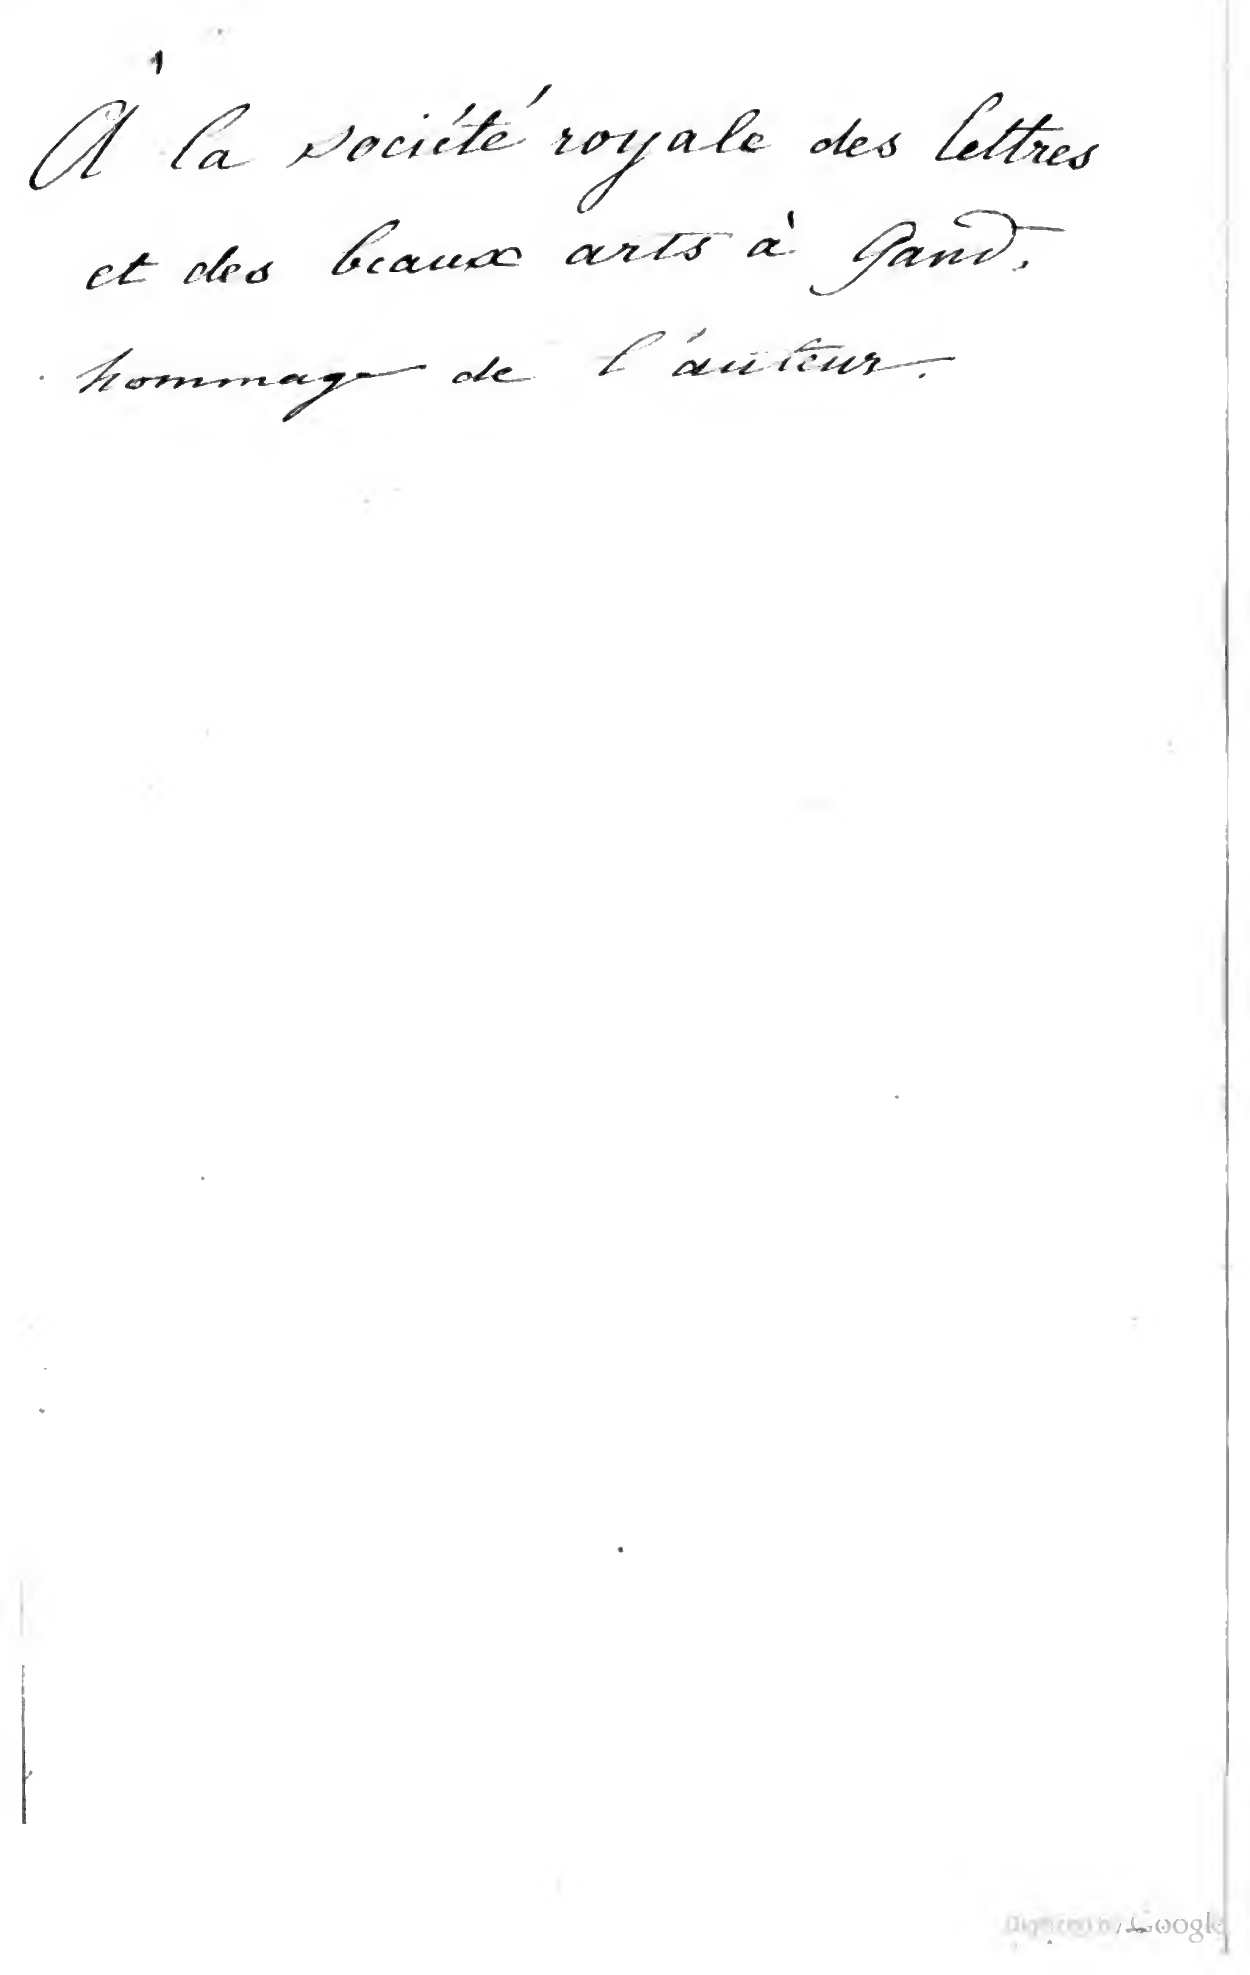 À la société royale des lettres
et des beaux arts à Gand,
hommage de l'auteur.
Digitized by Google